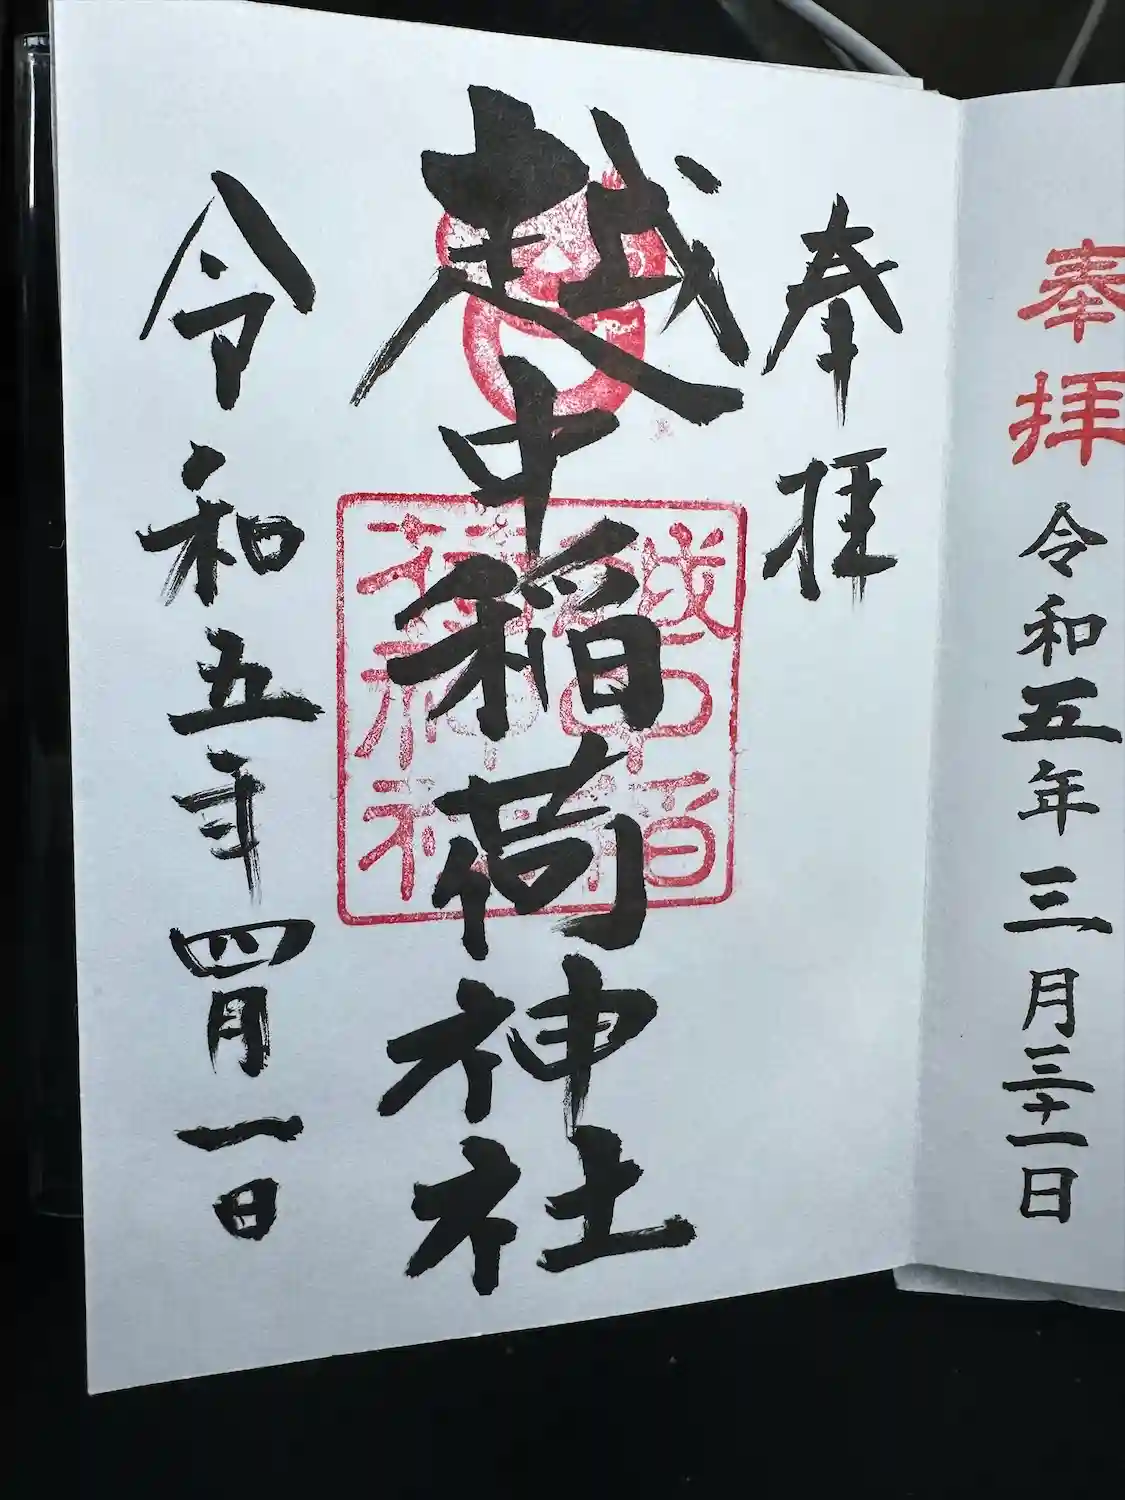 奉拝
令和五年三月三十一日
奉拝
越中稲荷神社
越中稲
荷神社
令和五年四月一日